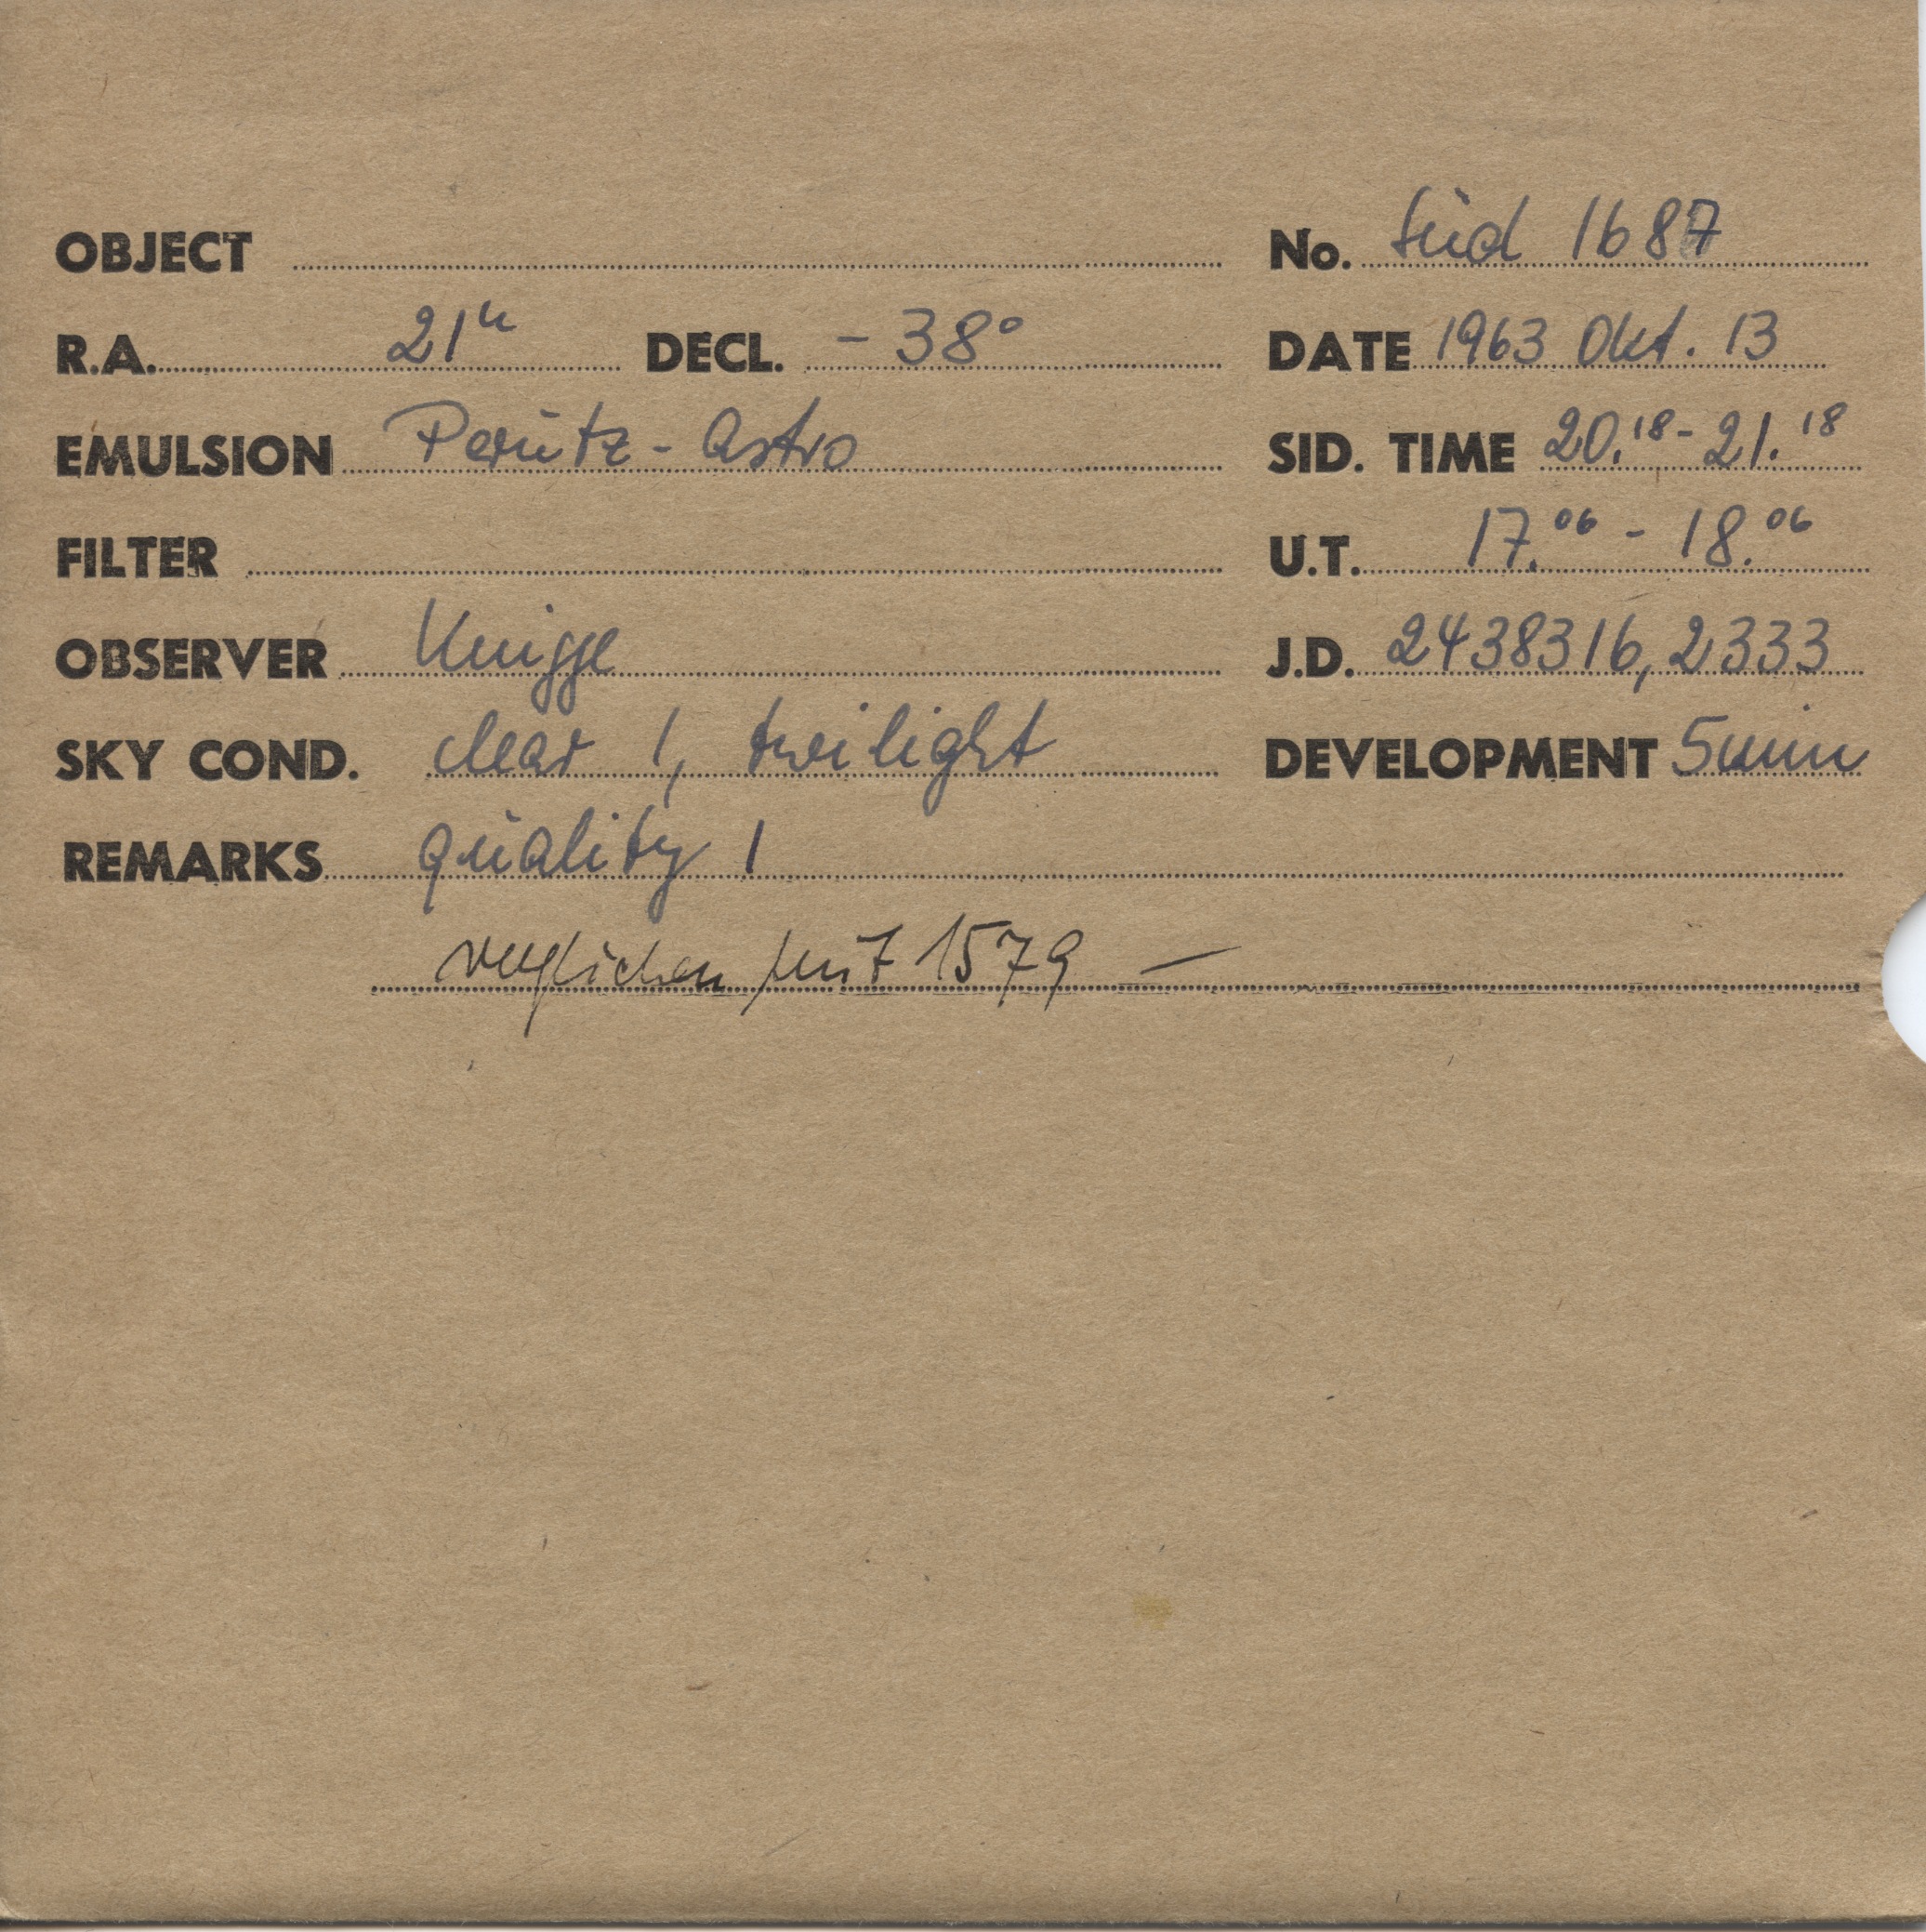 OBJECT No. Süd 1687
R.A. 21h DECL. - 38° DATE 1963 Okt. 13
EMULSION Perutz - Astro SID. TIME 20.18 - 21.18
FILTER U.T. 17.06 - 18.06
OBSERVER Knigge J.D. 2438316,2333
SKY COND. clear 1, twilight DEVELOPMENT 5min
REMARKS quality 1
verglichen mit 1579 —